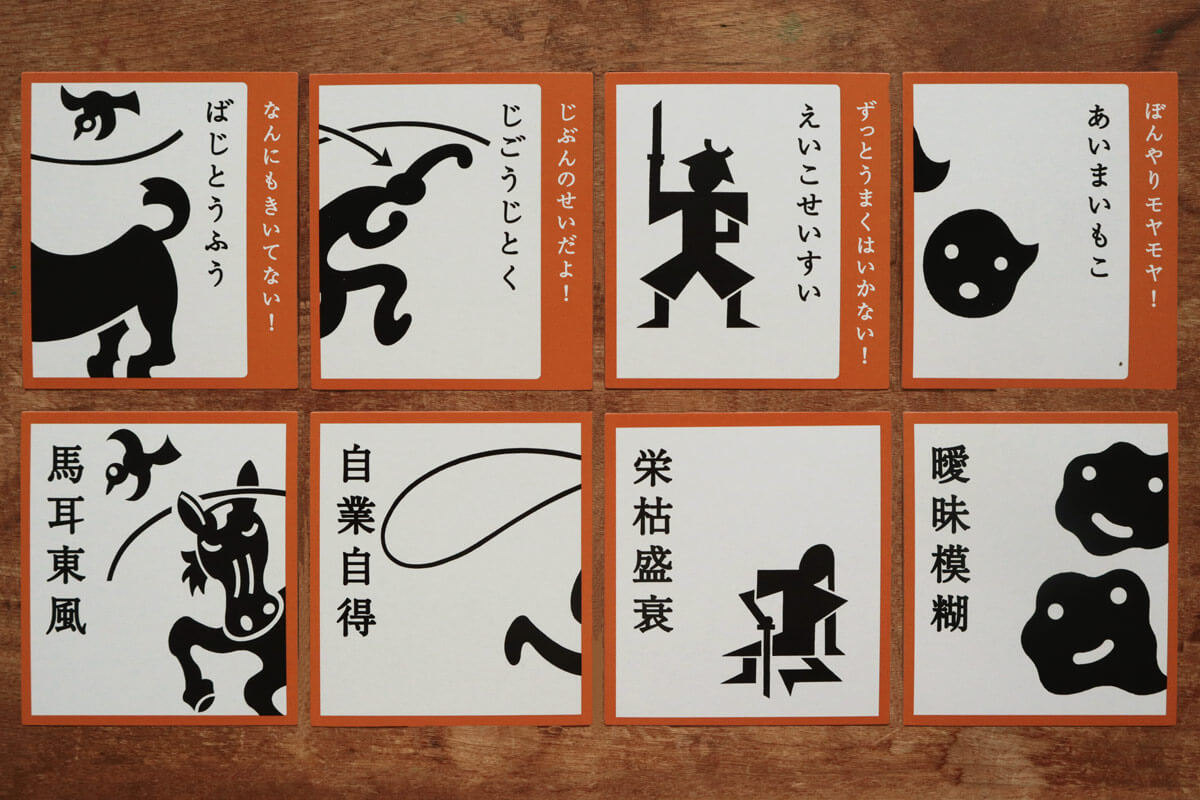 ぼんやりモヤモヤ！
あいまいもこ
ずっとうまくはいかない！
えいこせいすい
じぶんのせいだよ！
じごうじとく
なんにもきいてない！
ばじとうふう
曖昧模糊
栄枯盛衰
自業自得
馬耳東風